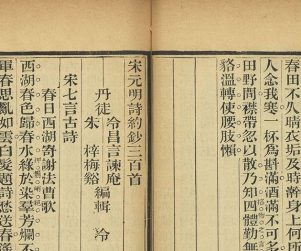 春田不久晴衣垢及時幹身上何
人念我寒一杯為斟滿酒滿不可多
田野間襟帶忽以散乃知四體勤無
貉溫轉使腰肢懶
宋元明詩約鈔三百首
冷昌言諫庵
丹徒 編輯 冷
朱 梓梅谿
宋七言古詩
春日西湖寄謝法曹歌
西湖春色歸春水綠於染羣芳爛不
軍春思亂如雲白髮題詩愁送春